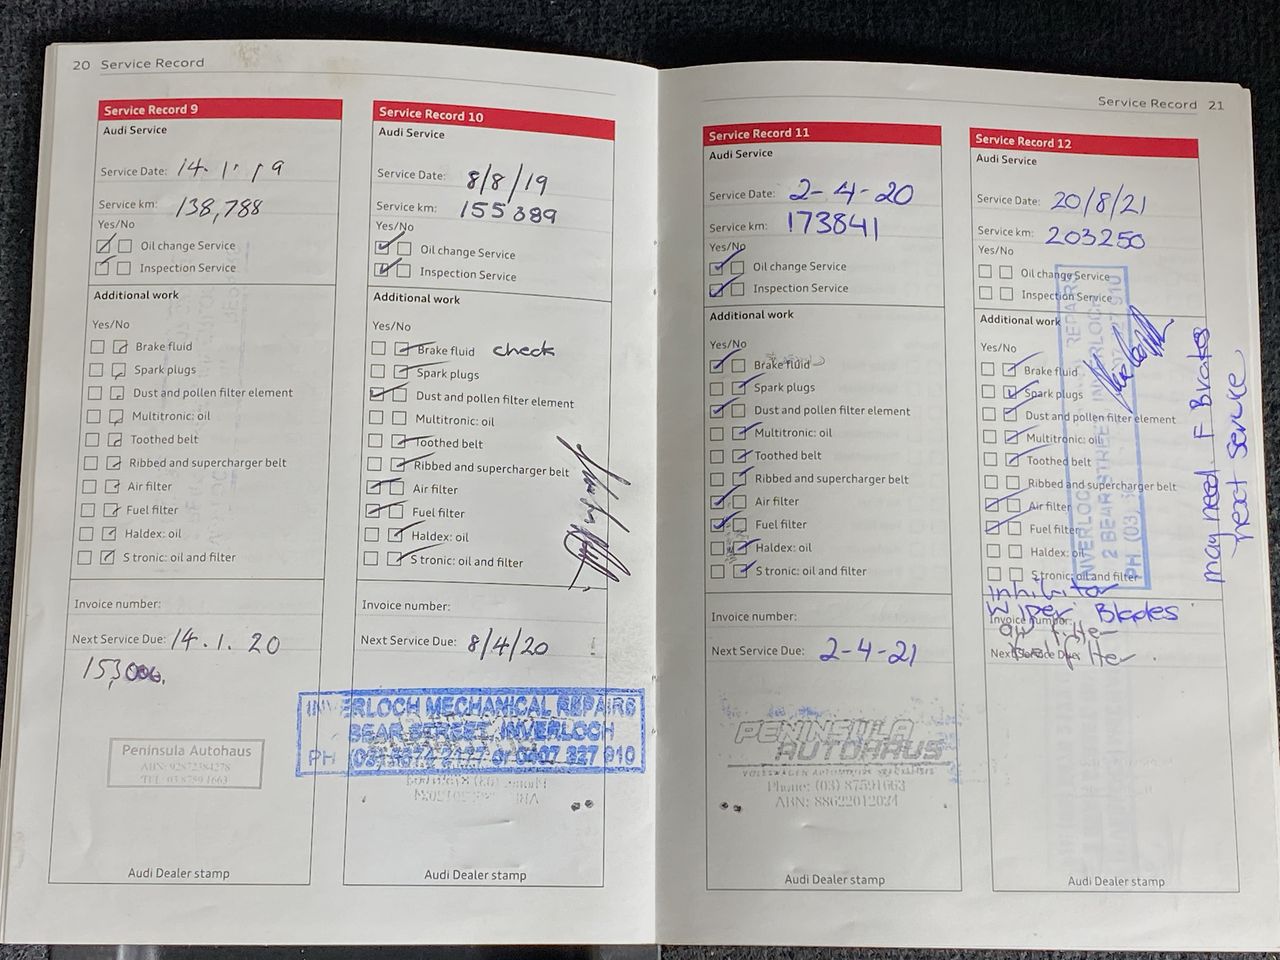 20 Service Record
Service Record 9
Audi Service
Service Date: 14.1.19
Service km: 138,788
Yes/No
Oil change Service
Inspection Service
Additional work
Yes/No
Brake fluid
Spark plugs
Dust and pollen filter element
Multitronic: oil
Toothed belt
Ribbed and supercharger belt
Air filter
Fuel filter
Haldex: oil
S tronic: oil and filter
Invoice number:
Next Service Due: 14.1.20
153,000.
Peninsula Autohaus
Audi Dealer stamp
Service Record 10
Audi Service
Service Date: 8/8/19
Service km: 155389
Yes/No
Oil change Service
Inspection Service
Additional work
Yes/No
Brake fluid check
Spark plugs
Dust and pollen filter element
Multitronic: oil
Toothed belt
Ribbed and supercharger belt
Air filter
Fuel filter
Haldex: oil
S tronic: oil and filter
Invoice number:
Next Service Due: 8/4/20
INVERLOCH MECHANICAL REPAIRS
BEAR STREET, INVERLOCH
PH (03) or 0407 327 910
Audi Dealer stamp
Service Record 21
Service Record 11
Audi Service
Service Date: 2-4-20
Service km: 173841
Yes/No
Oil change Service
Inspection Service
Additional work
Yes/No
Brake fluid
Spark plugs
Dust and pollen filter element
Multitronic: oil
Toothed belt
Ribbed and supercharger belt
Air filter
Fuel filter
Haldex: oil
S tronic: oil and filter
Invoice number:
Next Service Due: 2-4-21
PENINSULA
AUTOHAUS
Phone: (03) 87591663
ABN: 88622012034
Audi Dealer stamp
Service Record 12
Audi Service
Service Date: 20/8/21
Service km: 203250
Yes/No
Oil change Service
Inspection Service
Additional work
Yes/No
Brake fluid
Spark plugs
Dust and pollen filter element
Multitronic: oil
Toothed belt
Ribbed and supercharger belt
Air filter
Fuel filter
Haldex: oil
S tronic: oil and filter
inhibitor
Wiper Blades
Invoice number:
air filter
Next Service Due:
fuel filter
INVERLOCH REPAIRS
2 BEAR STREET INVERLOCH
PH (03)
may need F Brakes
next service
Audi Dealer stamp